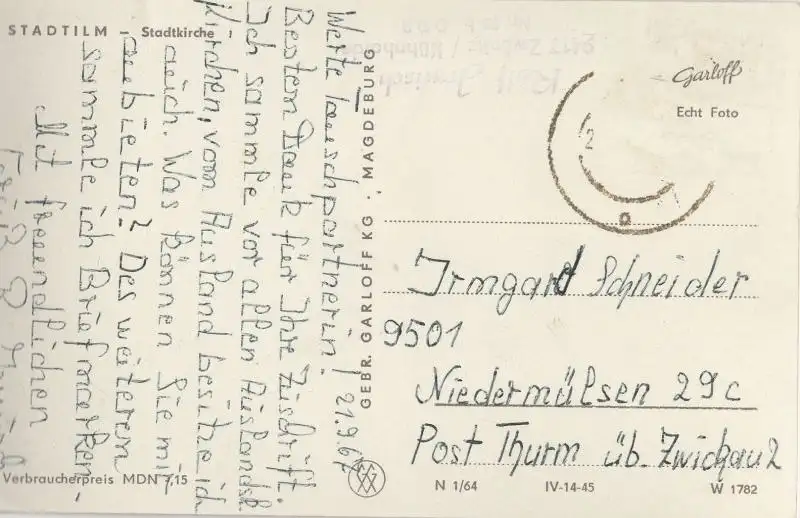 STADTILM – Stadtkirche
Werte Tauschpartnerin! 21.9.67
Besten Dank für Ihre Zuschrift.
Ich sammle vor allen Auslands
Kirchen, vom Ausland besitze ich
auch. Was können Sie mir
anbieten? Des weiteren
sammle ich Briefmarken.
Mit freundlichen
Verbraucherpreis MDN
GEBR. GARLOFF KG · MAGDEBURG
Garloff
Echt Foto
Irmgard Schneider
9501
Niedermülsen 29c
Post Thurm üb. Zwickau 2
N 1/64 IV-14-45 W 1782